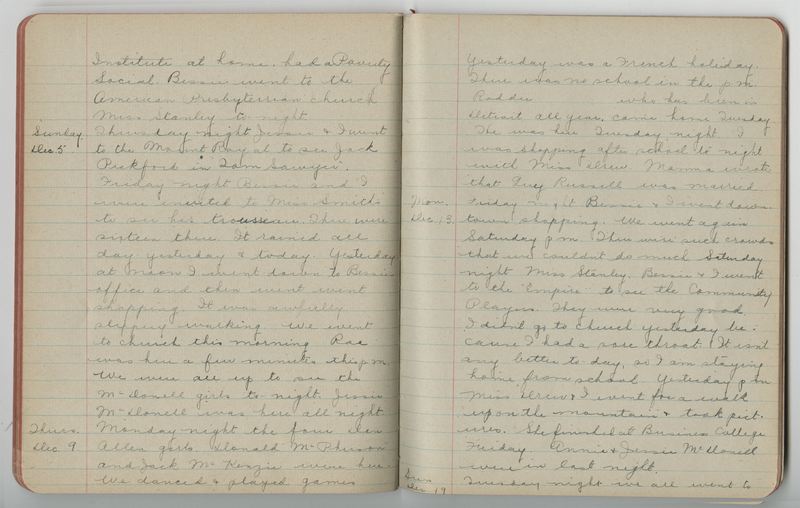 Institute at home. had a Poverty
Social. Bessie went to the
American Presbyterian Church
Miss Stanley to night.
Sunday Dec 5
Thursday night Jessie & I went
to the Mount Royal to see Jack
Pickford in Tom Sawyer.
Friday night Bessie and I
were invited to Miss Smith's
to see her trousseau. There were
sixteen there. It rained all
day yesterday & today. Yesterday
at noon I went down to Bessie's
office and then went
shopping. It was awfully
slippery walking. We went
to church this morning. Rae
was here a few minutes this p.m.
We were all up to see the
McDonell girls to night. Jessie
McDonell was here all night
Thurs. Dec 9
Monday night the four
Allen girls. Donald McPherson
and Jack McKenzie were here
We danced & played games
Yesterday was a French holiday.
There was no school in the p.m.
who has been in
Detroit all year, came home Tuesday
He was here Tuesday night. I
was shopping after school to night
with Miss Drew. Mamma wrote
that Guy Russell was married
Mon. Dec. 13.
Friday night Bessie & I went down
town shopping. We went again
Saturday p.m. There were such crowds
that we couldn't do much. Saturday
night Miss Stanley, Bessie & I went
to the "Empire" to see the Community
Players. They were very good.
I didn't go to church yesterday be-
cause I had a sore throat. It isn't
any better to-day, so I am staying
home from school. Yesterday p.m
Miss Drew & I went for a walk
upon the mountain & took pict-
ures. She finished at Business College
Friday. Annie & Jessie McDonell
were in last night.
Sun Dec 19
Tuesday night we all went to